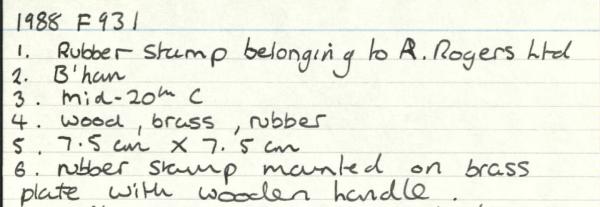 1988 F931
1. Rubber stamp belonging to A. Rogers Ltd
2. B'han
3. mid-20th C
4. wood, brass, rubber
5. 7.5 cm X 7.5 cm
6. rubber stamp mounted on brass
plate with wooden handle.